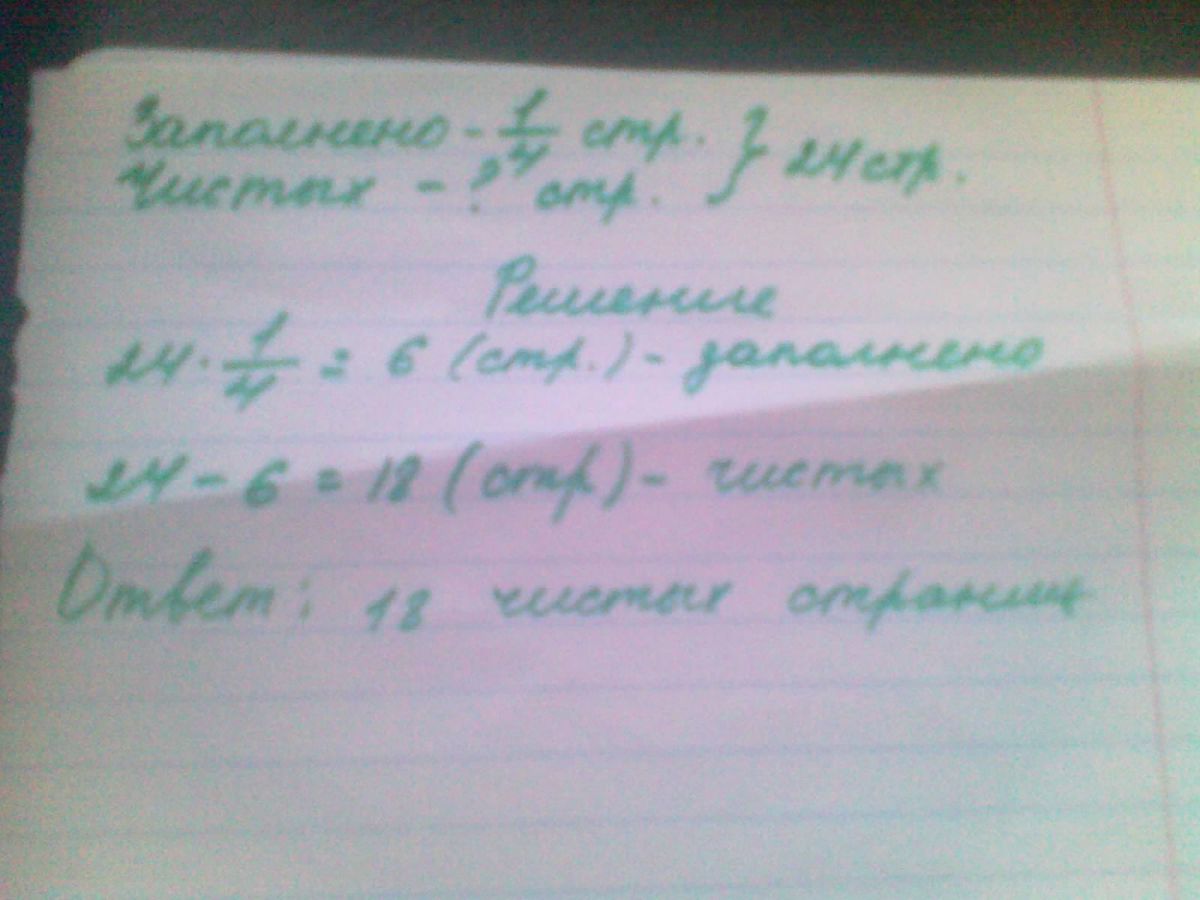 Заполнено - 1/4 стр. } 24 стр.
Чистых - ? стр.
Решение
24 · 1/4 = 6 (стр.) - заполнено
24 - 6 = 18 (стр) - чистых
Ответ: 18 чистых страниц